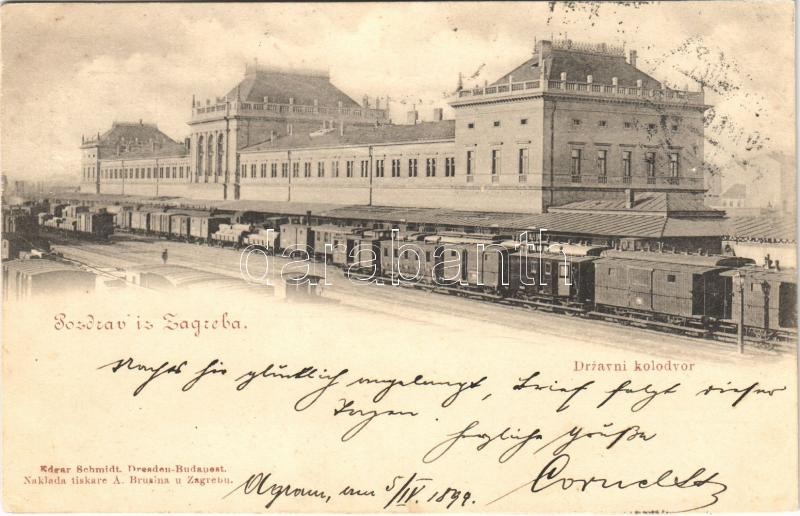 darabanth
Pozdrav iz Zagreba.
Državni kolodvor
Nachts hie glücklich angelangt, Brief folgt dieser
Tagen.
herzliche Grüße
Edgar Schmidt. Dresden-Budapest.
Naklada tiskare A. Brusina u Zagrebu.
Agram, am 5/IV. 1899.